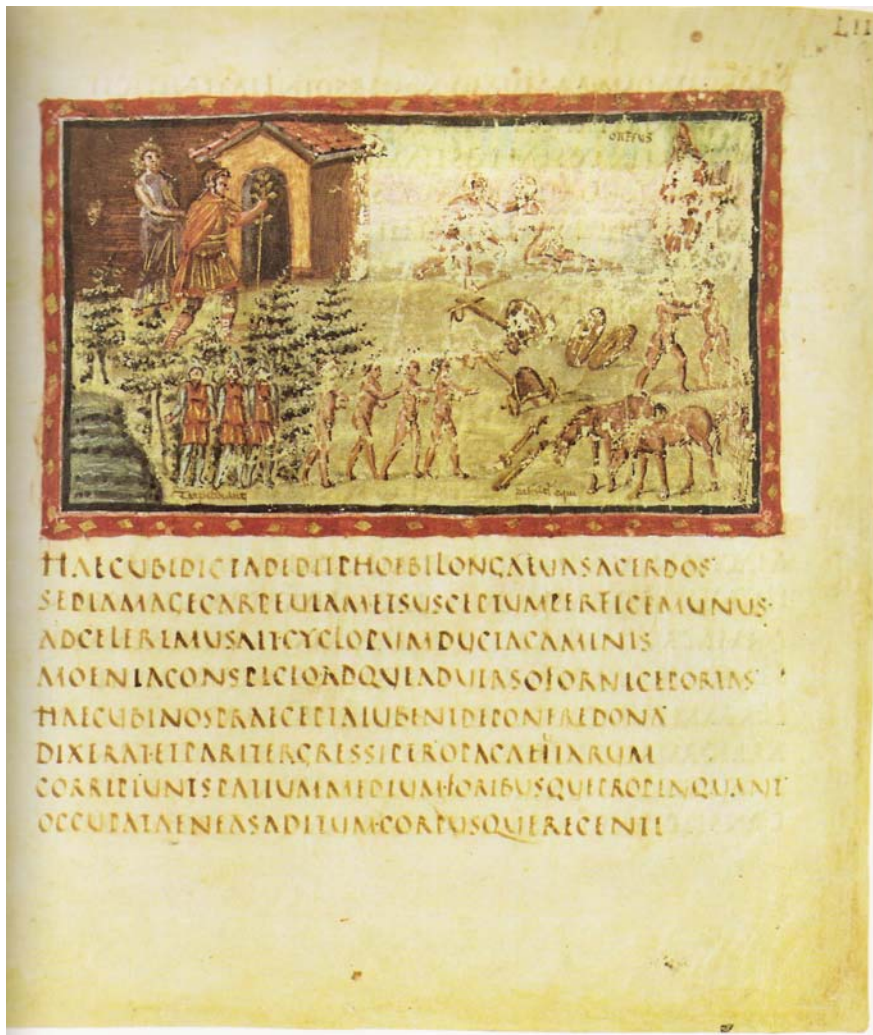 LII
ORFEUS
equi
HAECUBIDICTADEDITPHOEBILONGAEUASACERDOS
SEDIAMAGECARPEUIAMETSUSCEPTUMPERFICEMUNUS·
ADCELEREMUSAITCYCLOPUMDUCTACAMINIS
MOENIACONSPICIOADQUEADUERSOFORNICEPORTAS
HAECUBINOSPRAECEPTAIUBENTDEPONEREDONA
DIXERAT·ETPARITERGRESSIPEROPACAUIARUM
CORRIPIUNTSPATIUMMEDIUM·FORIBUSQUEPROPINQUANT
OCCUPATAENEASADITUM·CORPUSQUERECENTI